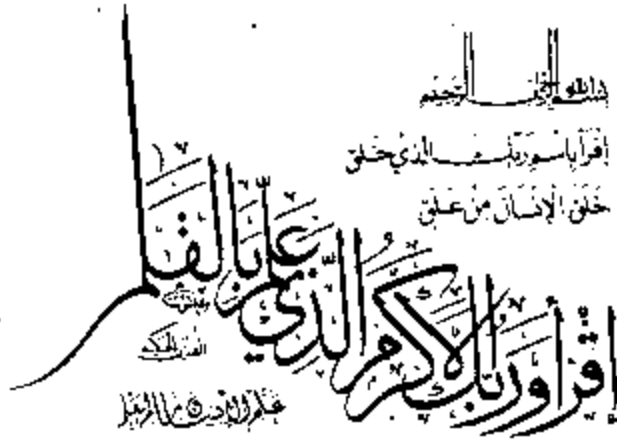 بسم الله الرحمن الرحيم
إقرأ باسم ربك الذي خلق
خلق الإنسان من علق
إقرأ وربك الأكرم الذي علم بالقلم
علم الإنسان ما لم يعلم